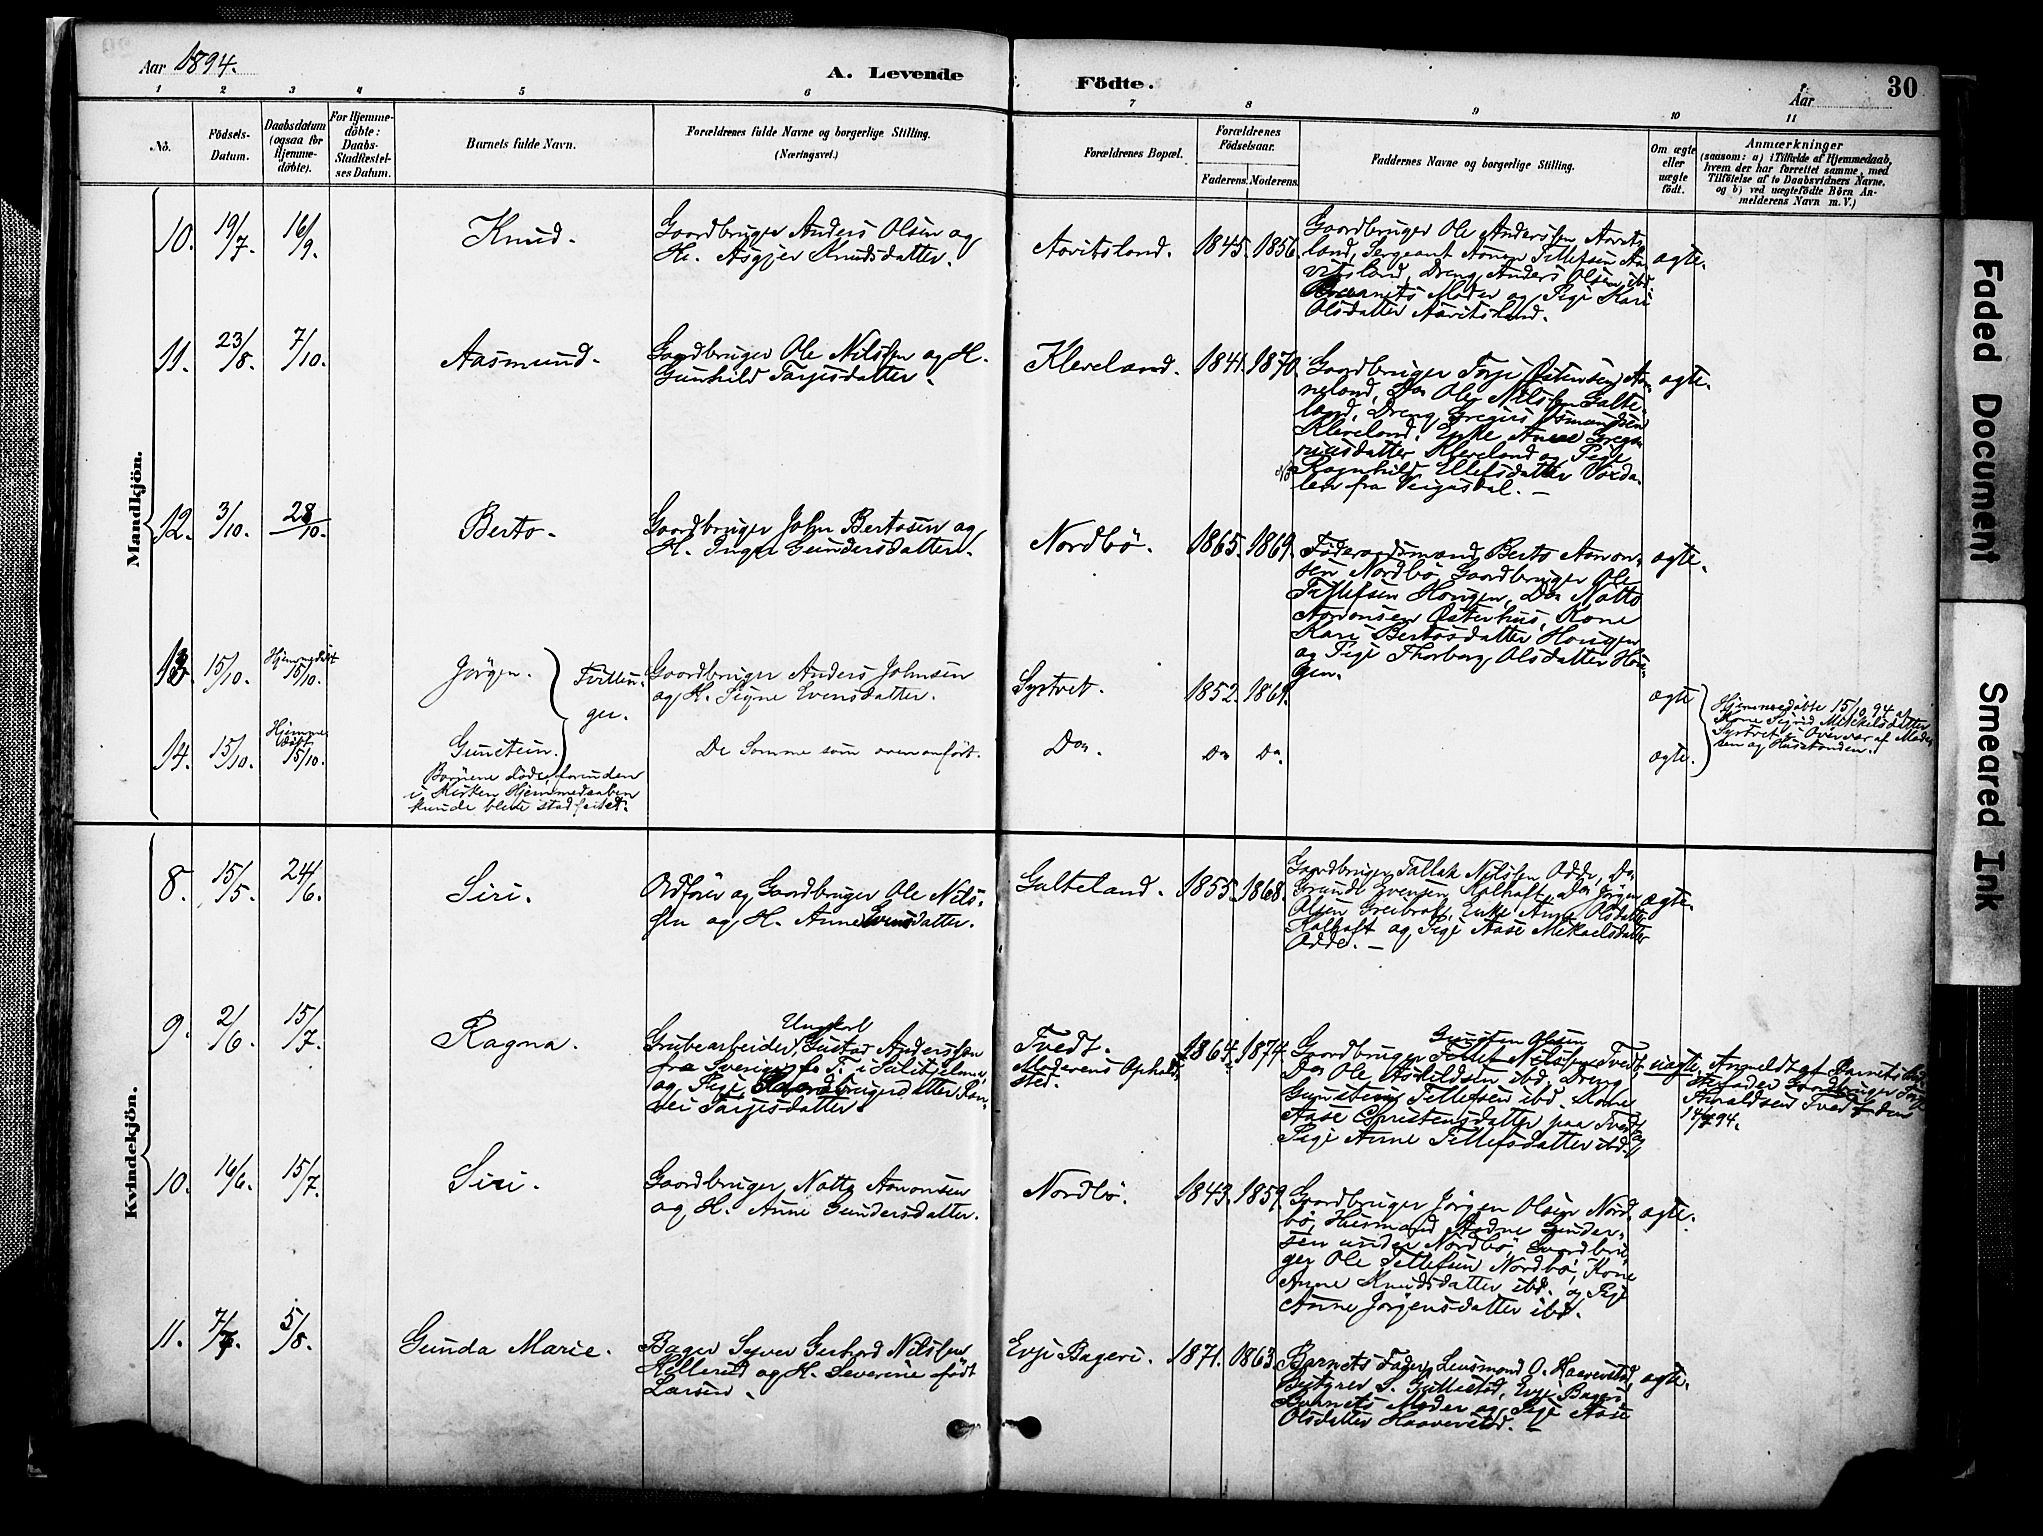 Aar 1894.
A. Levende Födte.
Aar
30
1 2 3 4 5 6 7 8 9 10 11
No.
Födsels-
Datum.
Daabsdatum
(ogsaa for
Hjemme-
döbte).
For Hjemme-
döbte:
Daabs-
Stadfæstel-
ses Datum.
Barnets fulde Navn.
Forældrenes fulde Navne og borgerlige Stilling.
(Næringsvei.)
Forældrenes Bopæl.
Forældrenes
Födselsaar.
Faderens. Moderens.
Faddernes Navne og borgerlige Stilling.
Om ægte
eller
uægte
födt.
Anmærkninger
(saasom: a) i Tilfælde af Hjemmedaab,
hvem der har forrettet samme, med
Tilföielse af to Daabsvidners Navne,
og b) ved uægtefödte Börn An-
melderens Navn m. V.)
Mandkjön.
10. 19/7. 16/9. Knud.
Gaardbruger Anders Olsen og
H. Asgjer Knudsdatter.
Aavitsland. 1845. 1856.
Gaardbruger Ole Anderssen Aavits-
land, Sergeant Aanen Tellefsen Aa-
vitsland, Dreng Anders Olsen ibd
Barnets Moder og Pige Kari
Olsdatter Aavitsland.
ægte.
11. 23/8. 7/10. Aasmund.
Gaardbruger Ole Nilssen og H.
Gunhild Tarjesdatter.
Kleveland. 1841. 1870.
Gaardbruger Torje
neland, Do Ole Nilssen Galte-
land, Dreng Gregers Osmundsen
Kleveland, Enke Anne Grego-
riusdatter Kleveland og Pige
Ragnhild Ellefsdatter
len fra Veigusdal.
ægte.
12. 3/10. 28/10. Berto.
Gaardbruger John Bertosen og
H. Inger Gundersdatter.
Nordbö. 1865. 1869.
Föderaadsmand Berto Aanon-
sen Nordbö, Gaardbruger Ole
Tellefsen Hougen, Do Natto
Aanonsen Østerhus, Kone
Kari Bertosdatter Hougen
og Pige Thorborg Olsdatter Hou-
gen.
ægte.
13. 15/10. Hjemmedöbt 15/10. Jörgen.
Tvillin-
ger.
Gaardbruger Anders Johnsen
og H. Signe Evensdatter.
Syrtvet. 1852. 1861.
ægte
Hjemmedöbte 15/10 94 af
Kone Sigrid Mikkelsdatter
Syrtvet i Overvær af Mode-
ren og Husstanden.
14. 15/10. Hjemme
döbt
15/10. Gunstein.
De Samme som ovenanfört.
Do. Do Do.
ægte.
Börnene döde forinden
i Kirken Hjemmedaaben
kunde blive stadfæstet.
Kvindekjön.
8. 15/5. 24/6. Siri.
Ordförer og Gaardbruger Ole Nils-
sen og H. Anne Evensdatter.
Galteland. 1855. 1868.
Gaardbruger Tallak Nilssen Odde, Do
Evensen Kalhaft, Do Jörgen
Olsen Greibrok, Enke Anne Olsdatter
Kalhaft og Pige Aase Mikaelsdatter
Odde.
ægte.
9. 2/6. 15/7. Ragna.
Ungkarl
Grubearbeider Gustav Anderssen
fra Sverige, f. T. i Sulitjelma,
og Pige Gaardbrugerdatter Ran-
vei Tarjesdatter.
Tvedt.
Moderens Opholds-
sted.
1864. 1874.
Gunsten Olsen
Gaardbruger Tellef Nilssen Tvedt,
Do Ole Askildsen ibd, Dreng
Gunsten Tellefsen ibd. Kone
Aase Christensdatter paa Tvedt og
Pige Anne Tellefsdatter ibd.
uægte.
Anmeldt af Barnets
Gaardbruger Tarje
Haraldsen Tvedt den
14/7 94.
10. 16/6. 15/7. Siri.
Gaardbruger Natto Aanonsen
og H. Anne Gundersdatter.
Nordbö. 1843. 1859.
Gaardbruger Jörgen Olsen Nord-
bö, Husmand Aadne Gunder-
sen under Nordbö, Gaardbru-
ger Ole Tellefsen Nordbö, Kone
Anne Knudsdatter ibd. og Pige
Anne Jörgensdatter ibd.
ægte.
11. 7/7. 5/8. Gunda Marie.
Bager Syver Gerhard Nilssen
Hellerud og H. Severine född
Larsen.
Evje Bageri. 1871. 1863.
Barnets Fader, Lensmand O. Haaverstad,
Bestyrer S. Gullestad, Evje Bageri
Barnets Moder og Pige Aase
Olsdatter Haaverstad.
ægte.
Faded Document
Smeared Ink